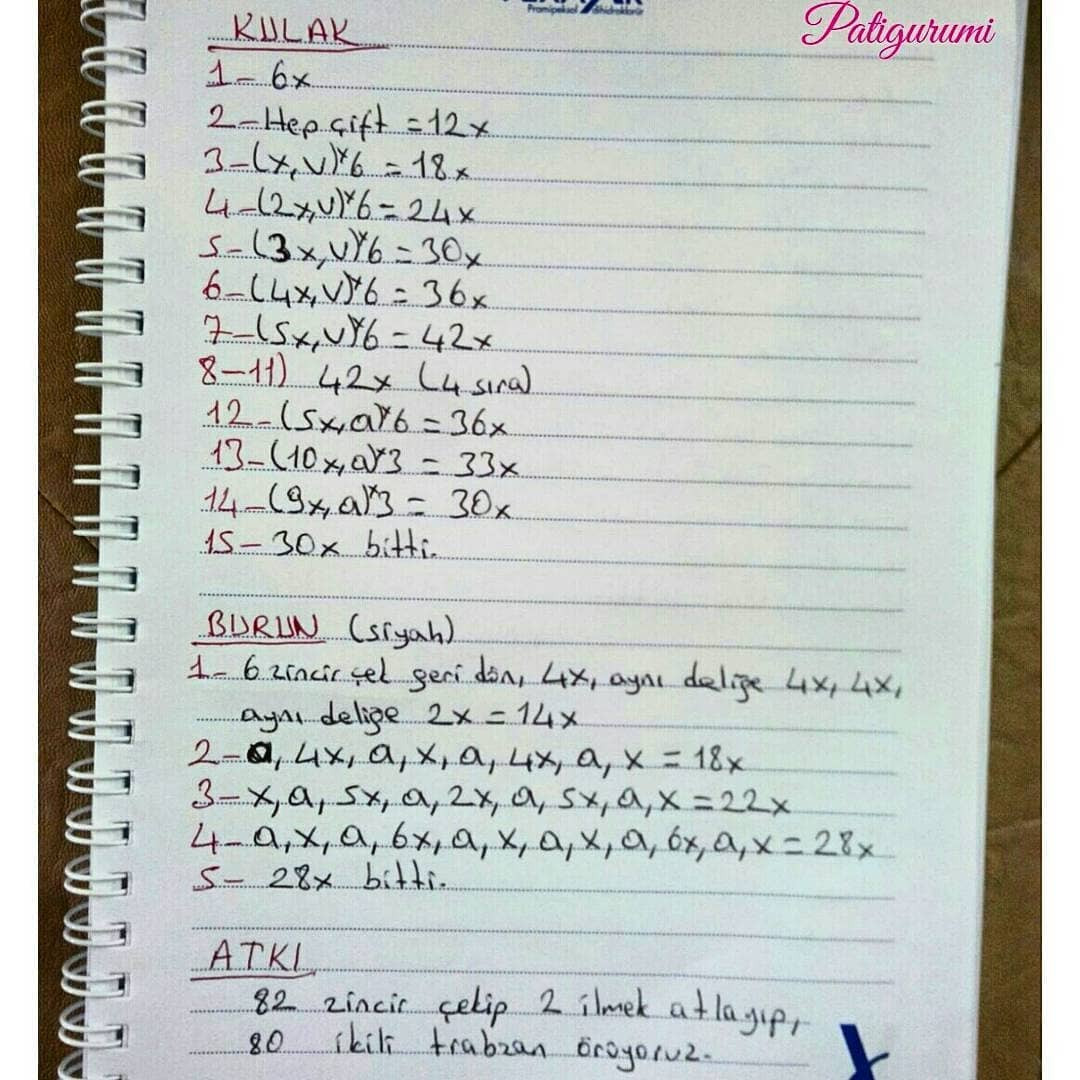 Pramipeksol dihidroklorür
Patigurumi
KULAK
1- 6x
2- Hep çift = 12x
3- (x, v)*6 = 18x
4- (2x, v)*6 = 24x
5- (3x, v)*6 = 30x
6- (4x, v)*6 = 36x
7- (5x, v)*6 = 42x
8-11) 42x (4 sıra)
12- (5x, a)*6 = 36x
13- (10x, a)*3 = 33x
14- (9x, a)*3 = 30x
15- 30x bitti.
BURUN (siyah)
1- 6 zincir çek geri dön, 4x, aynı deliğe 4x, 4x,
aynı deliğe 2x = 14x
2- a, 4x, a, x, a, 4x, a, x = 18x
3- x, a, 5x, a, 2x, a, 5x, a, x = 22x
4- a, x, a, 6x, a, x, a, x, a, 6x, a, x = 28x
5- 28x bitti.
ATKI
82 zincir çekip 2 ilmek atlayıp,
80 ikili trabzan örüyoruz.